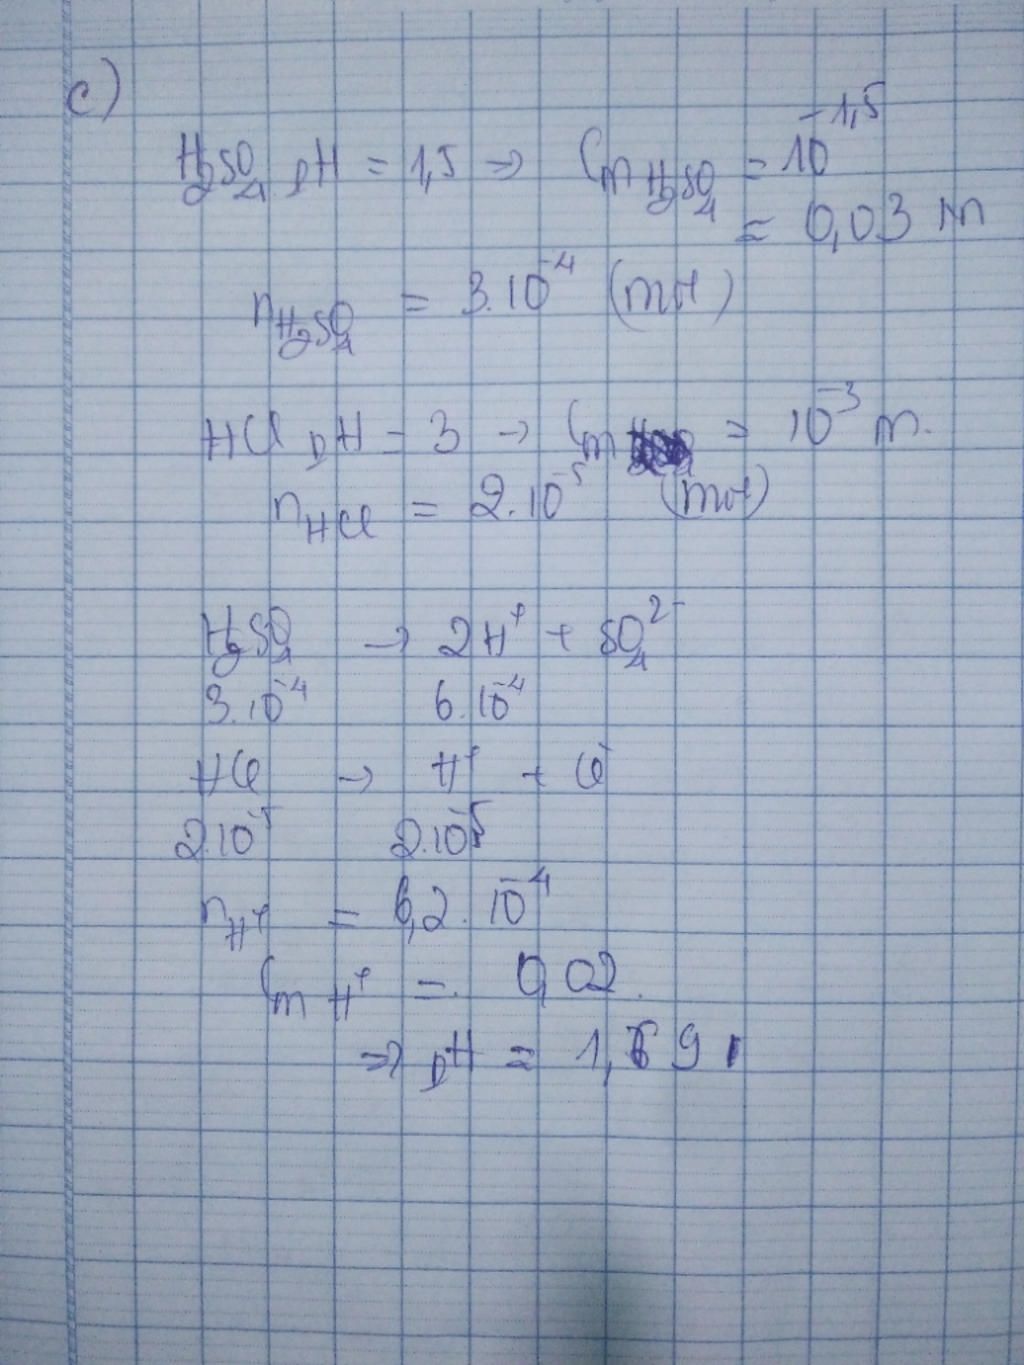 c)
H₂SO₄ pH = 1,5 => CM H₂SO₄ = 10^-1,5
= 0,03 M
nH₂SO₄ = 3.10^-4 (mol)
HCl pH = 3 -> CM = 10^-3 M.
nHCl = 2.10^-5 (mol)
H₂SO₄ -> 2H⁺ + SO₄²⁻
3.10^-4 6.10^-4
HCl -> H⁺ + Cl⁻
2.10^-5 2.10^-5
nH⁺ = 6,2.10^-4
CM H⁺ = 0,02.
=> pH = 1,69